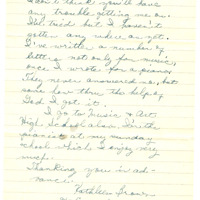 don't think you'll have
any trouble getting me one.
I've tried but I haven't
gotten any where as yet.
I've written a number of
letters not only for music,
once I wrote for a piano.
They never answered me, but
some how thru the help of
God I got it.
I go to Music & Art
High School also. I'm the
pianist at my Sunday
school which I enjoy very
much.
Thanking you in ad-
vance.
Kathleen